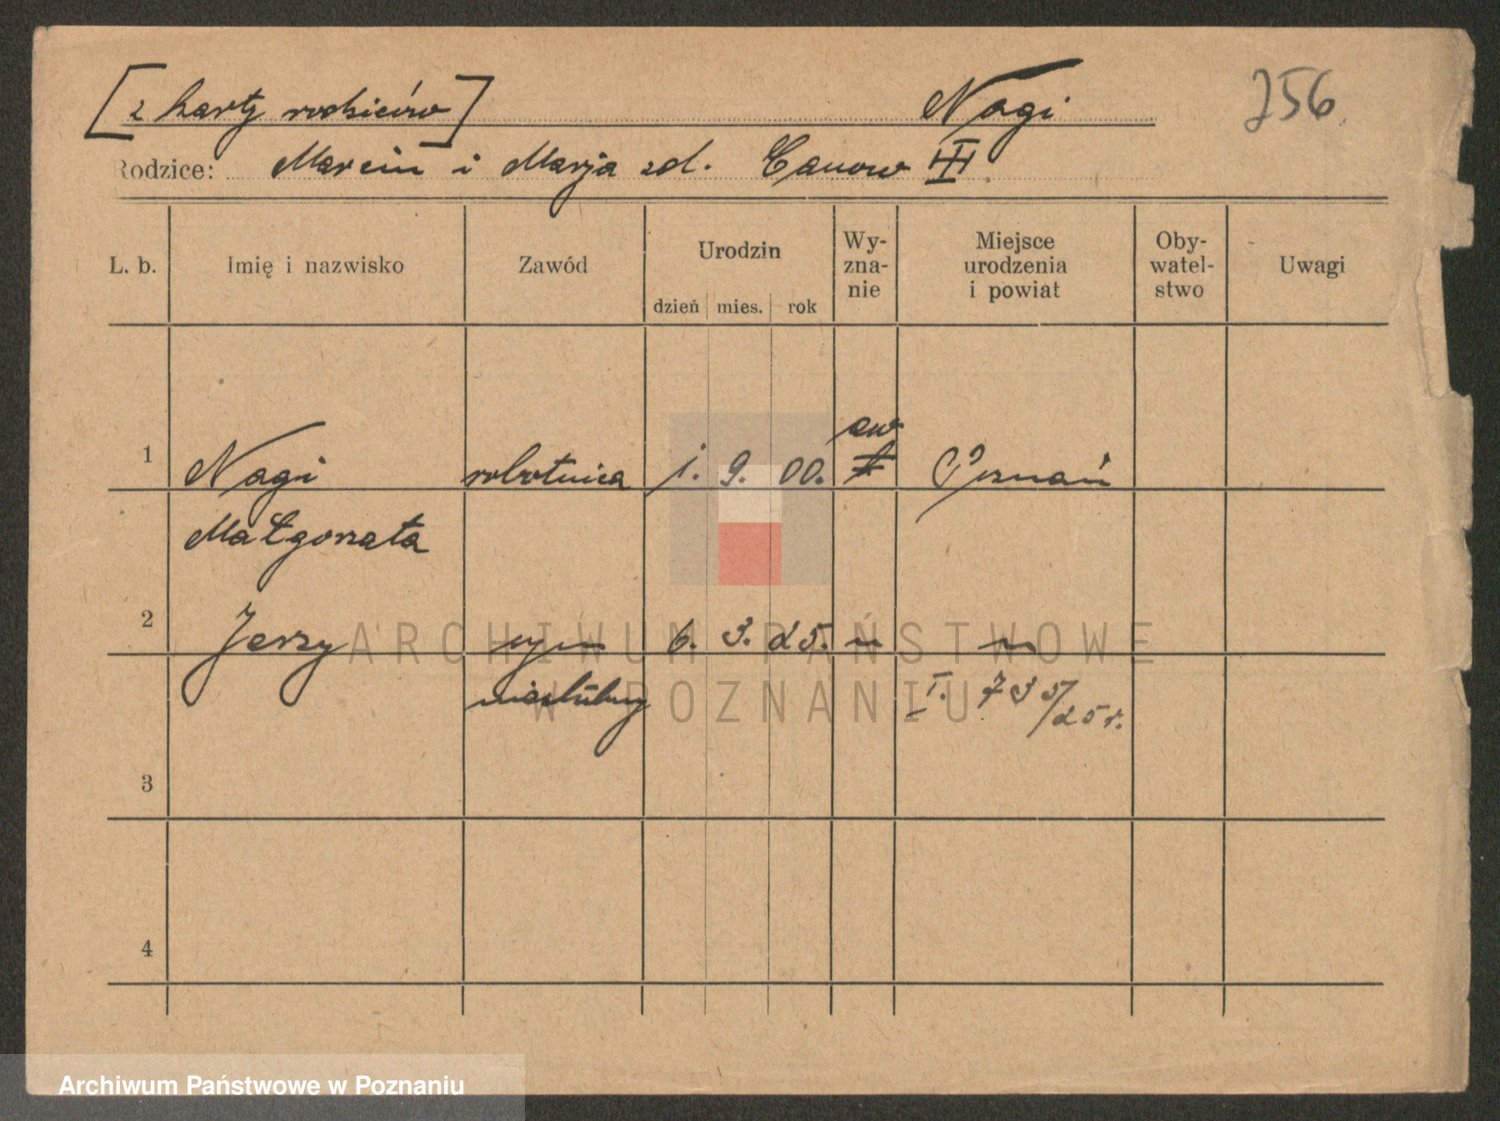 [z karty rodziców] Nagi 756
Rodzice: Marcin i Marja zd. Canow III
L. b. Imię i nazwisko Zawód Urodzin dzień mies. rok Wy-zna-nie Miejsce urodzenia i powiat Oby-watel-stwo Uwagi
ew
1 Nagi robotnica 1. 9. 00. Poznań
Małgorzata
2 Jerzy syn 6. 3. 25. " "
nieślubny I. 735/25r.
3
4
ARCHIWUM PAŃSTWOWE
W POZNANIU
Archiwum Państwowe w Poznaniu